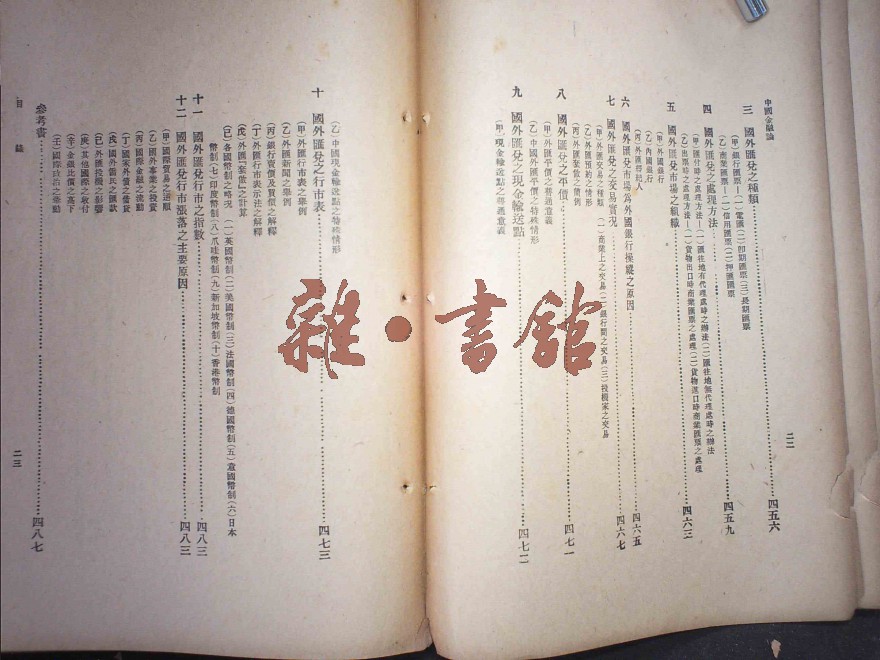 中國金融論
二二
三 國外匯兌之種類……四五六
（甲）銀行匯票—（一）電匯（二）即期匯票（三）長期匯票
（乙）商業匯票—（一）信用匯票（二）押匯匯票
四 國外匯兌之處理方法……四五九
（甲）匯付時之處理方法—（一）匯往地有代理處時之辦法（二）匯往地無代理處時之辦法
（乙）出票時之處理方法—（一）貨物出口時商業匯票之處理（二）貨物運口時商業匯票之處理
五 國外匯兌市場之組織……四六三
（甲）外國銀行
（乙）內國銀行
（丙）外匯經紀人
六 國外匯兌市場為外國銀行操縱之原因……四六五
七 國外匯兌之交易實況……四六七
（甲）外匯交易之種類 （一）商業上之交易（二）銀行間之交易（三）投機家之交易
（乙）外匯預約之情形
（丙）外匯繁散之簡例
八 國外匯兌之平價……四七一
（甲）外匯平價之普通意義
（乙）中國外匯平價之特殊情形
九 國外匯兌之現金輸送點……四七二
（甲）現金輸送點之普通意義
（乙）中國現金輸送點之特殊情形
十 國外匯兌之行市表……四七三
（甲）外匯行市表之舉例
（乙）外匯新聞之舉例
（丙）銀行賣價及買價之解釋
（丁）外匯行市表示法之解釋
（戊）外匯「套做」之計算
（己）各國幣制之略況 （一）英國幣制（二）美國幣制（三）法國幣制（四）德國幣制（五）意國幣制（六）日本
幣制（七）印度幣制（八）爪哇幣制（九）新加坡幣制（十）香港幣制
十一 國外匯兌行市之指數……四八三
十二 國外匯兌行市漲落之主要原因……四八三
（甲）國際貿易之逆順
（乙）國外事業之投資
（丙）國際金融之流動
（丁）國家外債之借貸
（戊）國外僑民之匯款
（己）外匯投機之影響
（庚）其他國際之收付
（辛）金銀比價之高下
（壬）國際政治之變動
參考書……四八七
目錄
二三
雜·書館